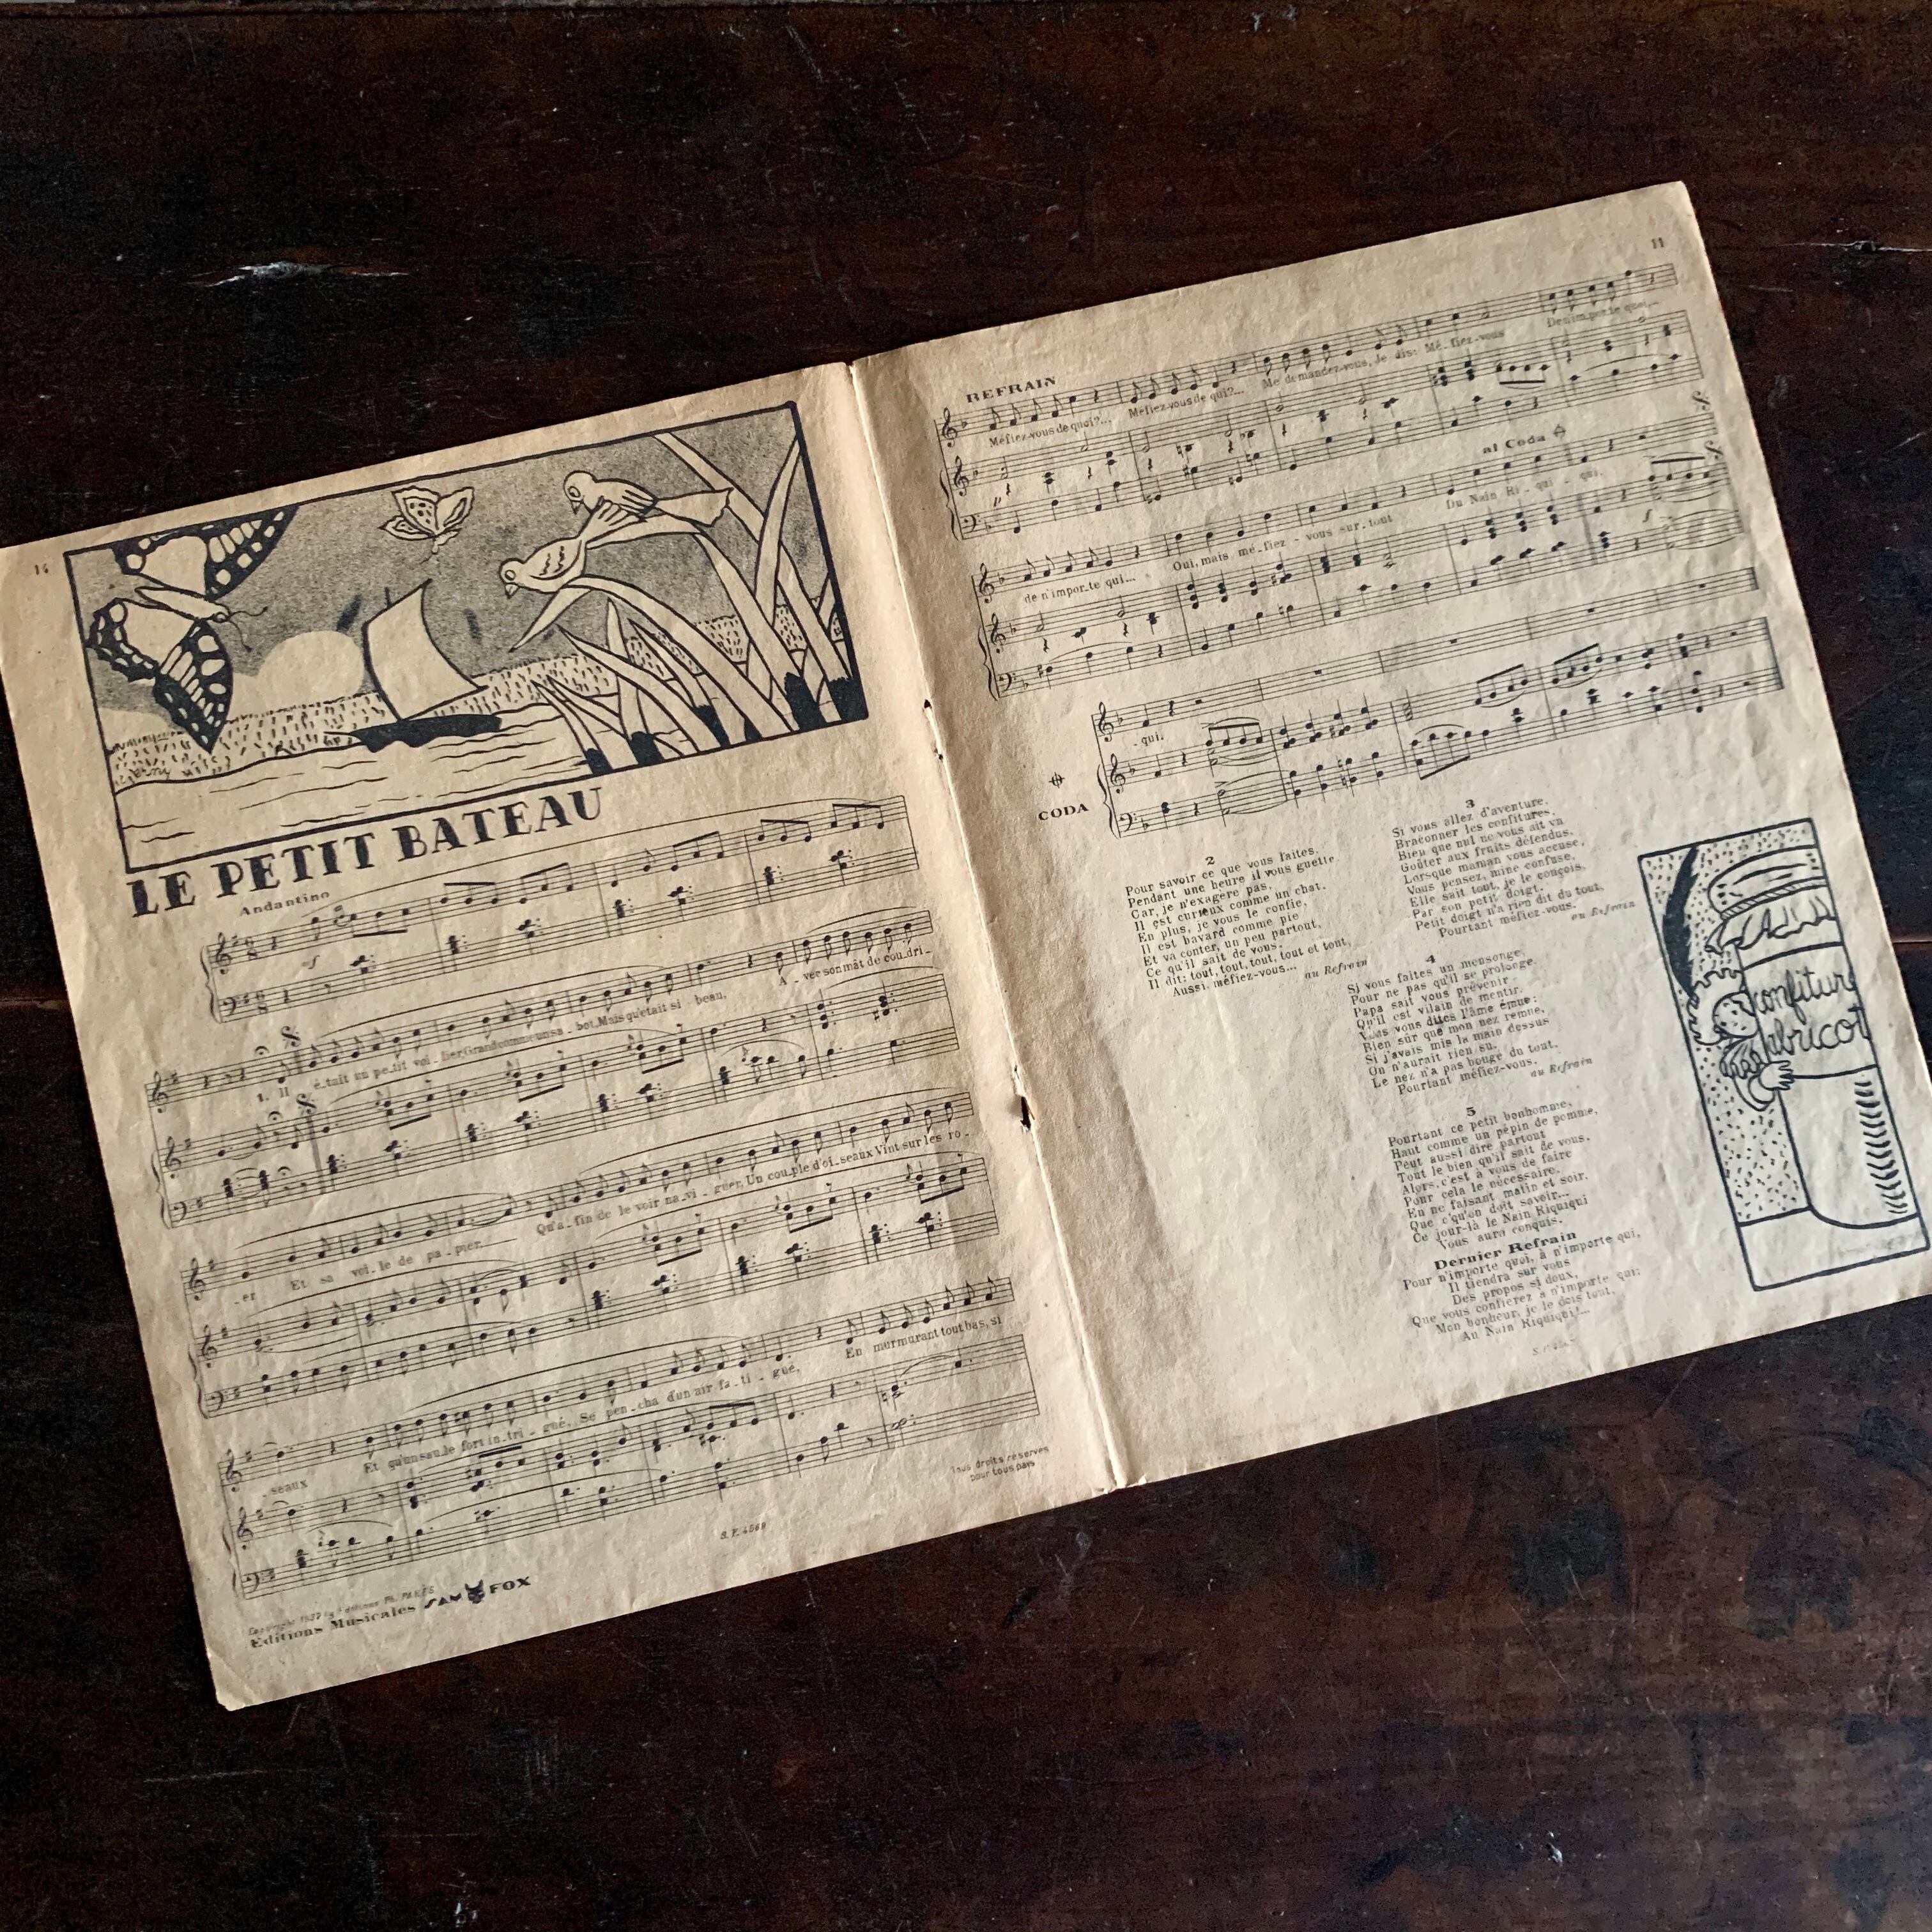 14
LE PETIT BATEAU
Andantino
1. Il é-tait un pe-tit voi-lier, Grand comme un sa-bot, Mais qu'était si beau, A-vec son mât de cou-dri-
-er Et sa voi-le de pa-pier, Qu'a-fin de le voir na-vi-guer, Un cou-ple d'oi-seaux Vint sur les ro-
-seaux Et qu'un saule fort in-tri-gué, Se pen-cha d'un air fa-ti-gué, En murmurant tout bas, si
Tous droits réservés
pour tous pays
S. F. 4569
Copyright 1937 by
Editions Musicales SAM FOX
11
REFRAIN
Méfiez-vous de quoi?... Méfiez-vous de qui?... Me demandez-vous, Je dis: Mé-fiez-vous De n'im-por-te quoi...
al Coda
de n'impor-te qui... Oui, mais mé-fiez-vous sur-tout Du Nain Ri-qui-qui.
CODA
-qui.
2
Pour savoir ce que vous faites,
Pendant une heure il vous guette
Car, je n'exagère pas,
Il est curieux comme un chat.
En plus, je vous le confie,
Il est bavard comme pie
Et va conter, un peu partout,
Ce qu'il sait de vous.
Il dit: tout, tout, tout, tout et tout,
Aussi, méfiez-vous...
au Refrain
3
Si vous allez d'aventure,
Braconner les confitures,
Bien que nul ne vous ait vu
Goûter aux fruits défendus,
Lorsque maman vous accuse,
Vous pensez, mine confuse,
Elle sait tout, je le conçois,
Par son petit doigt.
Petit doigt n'a rien dit du tout,
Pourtant méfiez-vous.
au Refrain
4
Si vous faites un mensonge,
Pour ne pas qu'il se prolonge,
Papa sait vous prévenir
Qu'il est vilain de mentir.
Vous vous dites l'âme émue:
Bien sûr que mon nez remue,
Si j'avais mis la main dessus
On n'aurait rien su.
Le nez n'a pas bougé du tout,
Pourtant méfiez-vous.
au Refrain
5
Pourtant ce petit bonhomme,
Haut comme un pépin de pomme,
Peut aussi dire partout
Tout le bien qu'il sait de vous.
Alors, c'est à vous de faire
Pour cela le nécessaire,
En ne faisant matin et soir,
Que c'qu'on doit savoir...
Ce jour-là le Nain Riquiqui
Vous aura conquis.
Dernier Refrain
Pour n'importe quoi, à n'importe qui,
Il tiendra sur vous
Des propos si doux,
Que vous confierez à n'importe qui:
Mon bonheur, je le dois tout,
Au Nain Riquiqui!...
confiture
abricot